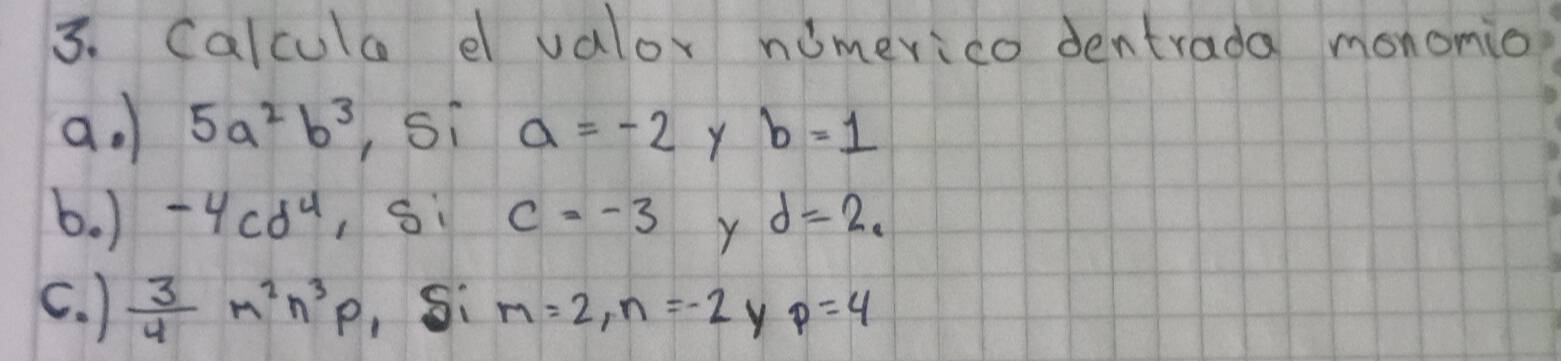 3. Calcula el valor númerico dentrada monomio
a.) 5a²b³, Si a = -2 y b = 1
b.) -4cd⁴, Si c = -3 y d = 2.
c.) 3/4 m²n³p, Si m = 2, n = -2 y p = 4